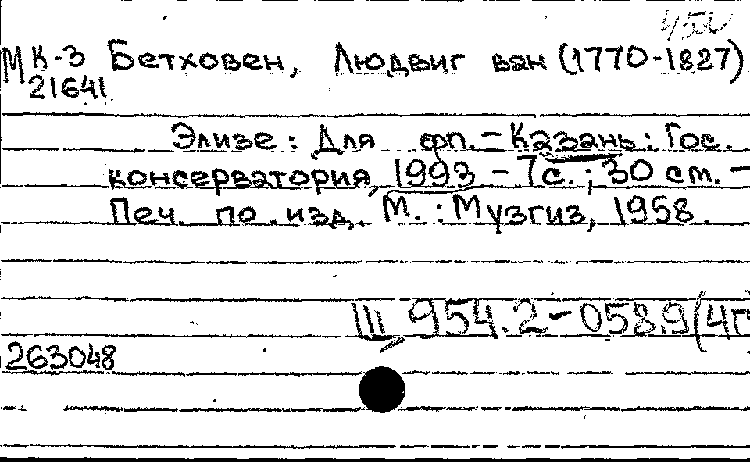 МК-3 Бетховен, Людвиг ван (1770-1827)
21641
Элизе: Для фп. – Казань: Гос.
консерватория, 1993 – 7с.; 30 см. –
Печ. по изд. М.: Музгиз, 1958.
Ш 954.2-058.9(4Г
263048